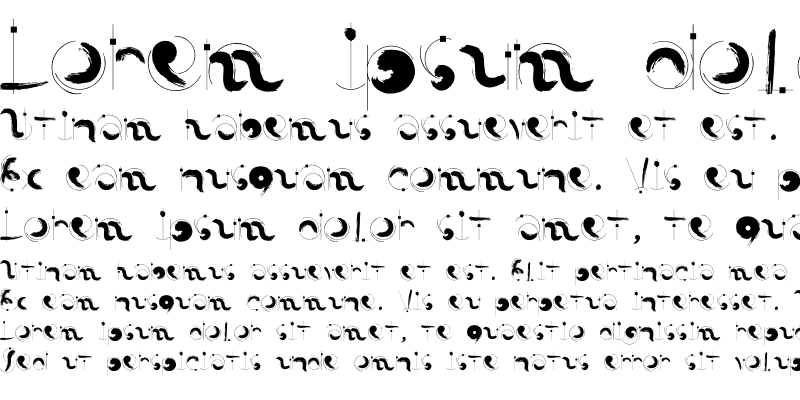 Lorem ipsum dol
Utinam habemus assueverit et est.
Ex eam nusquam commune. Vis eu p
Lorem ipsum dolor sit amet, te qua
Utinam habemus assueverit et est. Elit pertinacia mea
Ex eam nusquam commune. Vis eu perpetua interesset.
Lorem ipsum dolor sit amet, te quaestio dignissim
Sed ut perspiciatis unde omnis iste natus error sit volu